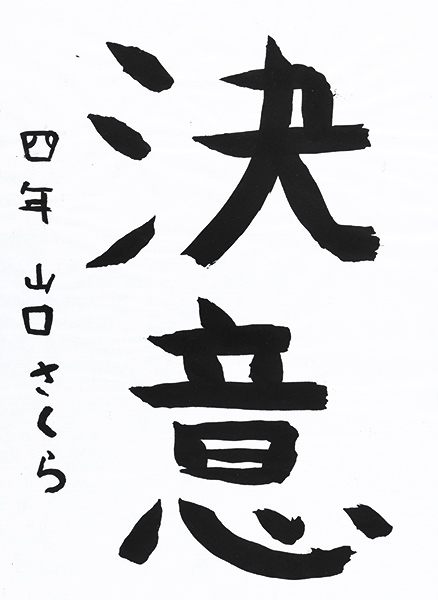 決意
四年 山口さくら